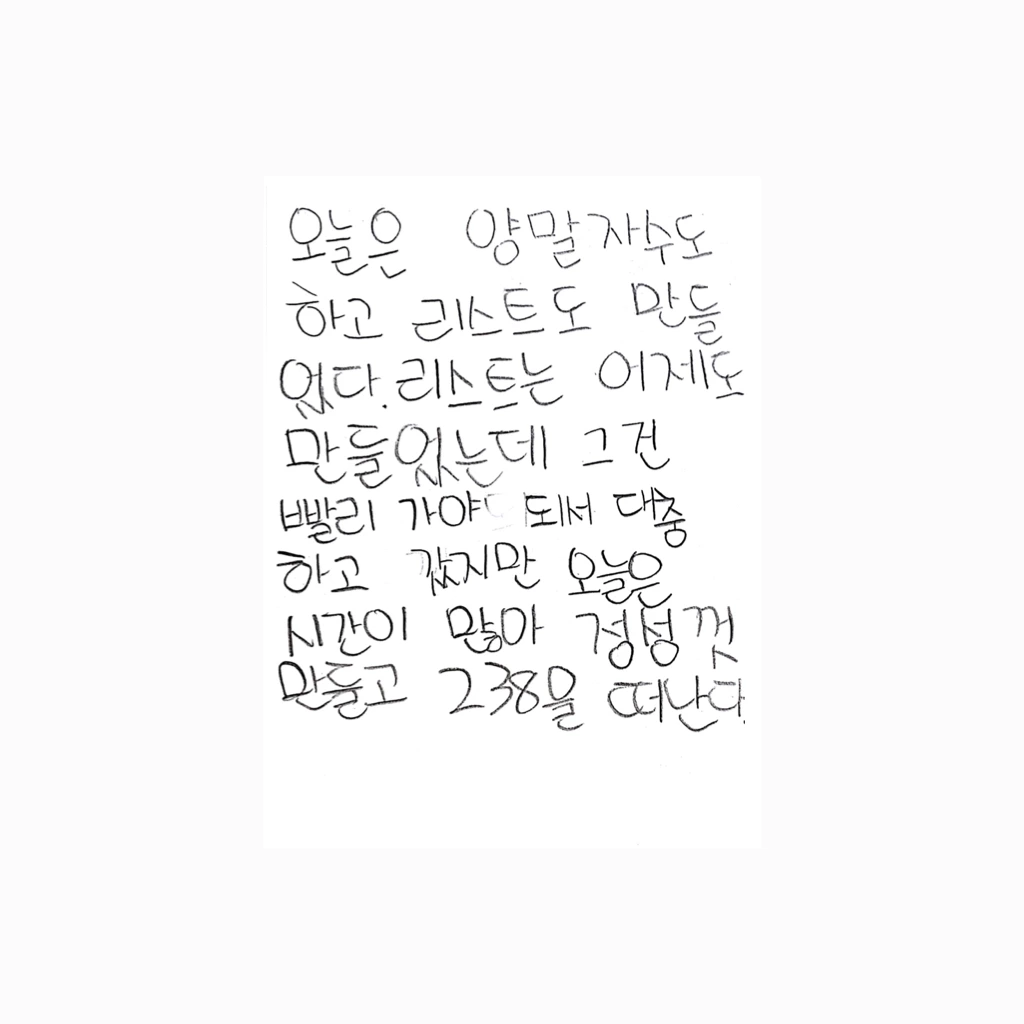 오늘은 양말자수도
하고 리스트도 만들
었다. 리스트는 어제도
만들었는데 그건
빨리 가야 되서 대충
하고 갔지만 오늘은
시간이 많아 정성껏
만들고 238을 떠난다.